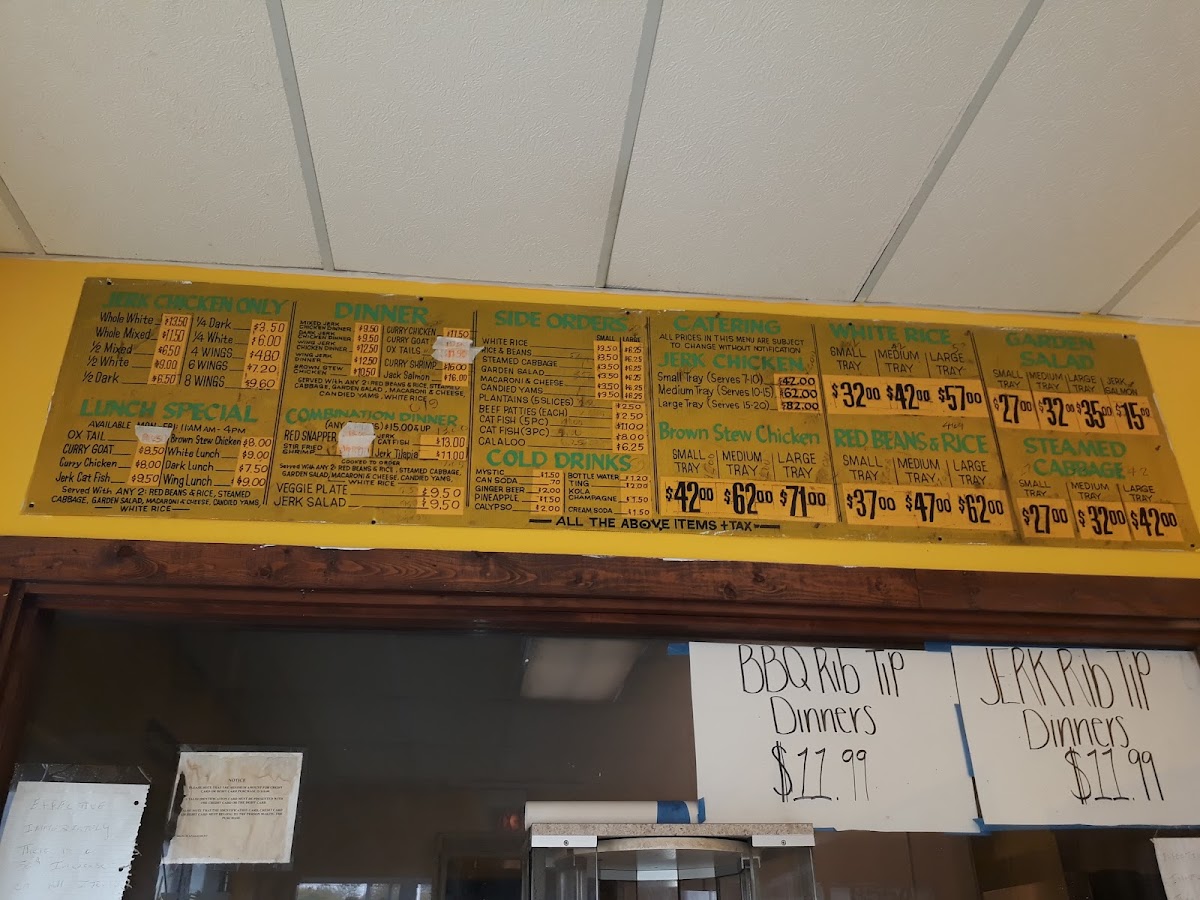 JERK CHICKEN ONLY
Whole White $13.50
Whole Mixed $11.50
½ Mixed $6.50
½ White $9.00
½ Dark $6.50
¼ Dark $3.50
¼ White $6.00
4 WINGS $4.80
6 WINGS $7.20
8 WINGS $9.60
LUNCH SPECIAL
AVAILABLE FRI: 11AM - 4PM
OX TAIL
CURRY GOAT $8.50
Curry Chicken $8.00
Jerk Cat Fish $9.50
Brown Stew Chicken $8.00
White Lunch $9.00
Dark Lunch $7.50
Wing Lunch $9.00
Served With ANY 2: RED BEANS & RICE, STEAMED
CABBAGE, GARDEN SALAD, MACARONI & CHEESE, CANDIED YAMS,
WHITE RICE
DINNER
MIXED JERK
CHICKEN DINNER $9.50
DARK JERK
CHICKEN DINNER $9.50
WHITE JERK
CHICKEN DINNER $12.50
WING JERK
DINNER $12.50
BROWN STEW
CHICKEN $10.50
CURRY CHICKEN $11.50
CURRY GOAT
OX TAILS
CURRY SHRIMP $16.00
Jack Salmon $16.00
SERVED WITH ANY 2: RED BEANS & RICE, STEAMED
CABBAGE, GARDEN SALAD, MACARONI & CHEESE,
CANDIED YAMS, WHITE RICE
COMBINATION DINNER
(ANY $15.00 & UP
RED SNAPPER
STIR FRIED
SHRIMP
JERK
CATFISH $13.00
Jerk Tilapia $11.00
COOKED TO ORDER
Served With ANY 2: RED BEANS & RICE, STEAMED CABBAGE,
GARDEN SALAD, MACARONI & CHEESE, CANDIED YAMS,
WHITE RICE
VEGGIE PLATE $9.50
JERK SALAD $9.50
SIDE ORDERS
SMALL LARGE
WHITE RICE $3.50 $6.25
RICE & BEANS $3.50 $6.25
STEAMED CABBAGE $3.50 $6.25
GARDEN SALAD $3.50 $6.25
MACARONI & CHEESE $3.50 $6.25
CANDIED YAMS $3.50 $6.25
PLANTAINS (5 SLICES) $2.50
BEEF PATTIES (EACH) $2.50
CAT FISH (5PC) $11.00
CAT FISH (3PC) $8.00
CALALOO $6.25
COLD DRINKS
MYSTIC $1.50
CAN SODA .70
GINGER BEER $2.00
PINEAPPLE $1.50
CALYPSO $2.00
BOTTLE WATER $1.20
TING $2.00
KOLA
CHAMPAGNE $1.50
CREAM SODA $1.50
ALL THE ABOVE ITEMS + TAX
CATERING
ALL PRICES IN THIS MENU ARE SUBJECT
TO CHANGE WITHOUT NOTIFICATION
JERK CHICKEN
Small Tray (Serves 7-10) $42.00
Medium Tray (Serves 10-15) $62.00
Large Tray (Serves 15-20) $82.00
Brown Stew Chicken
SMALL TRAY MEDIUM TRAY LARGE TRAY
$42.00 $62.00 $71.00
WHITE RICE
SMALL TRAY MEDIUM TRAY LARGE TRAY
$32.00 $42.00 $57.00
RED BEANS & RICE
SMALL TRAY MEDIUM TRAY LARGE TRAY
$37.00 $47.00 $62.00
GARDEN
SALAD
SMALL TRAY MEDIUM TRAY LARGE TRAY JERK SALMON
$27.00 $32.00 $35.00 $15.00
STEAMED
CABBAGE
SMALL TRAY MEDIUM TRAY LARGE TRAY
$27.00 $32.00 $42.00
BBQ Rib Tip
Dinners
$11.99
JERK Rib Tip
Dinners
$11.99
NOTICE
EFFECTIVE